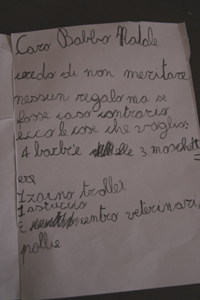 Caro Babbo Natale
credo di non meritare
nessun regalo ma se
fosse caso contrario
ecco le cose che voglio:
4 barbie 3 moschett
ere
1 zaino trollei
1 astuccio
E centro veterinari
pollie